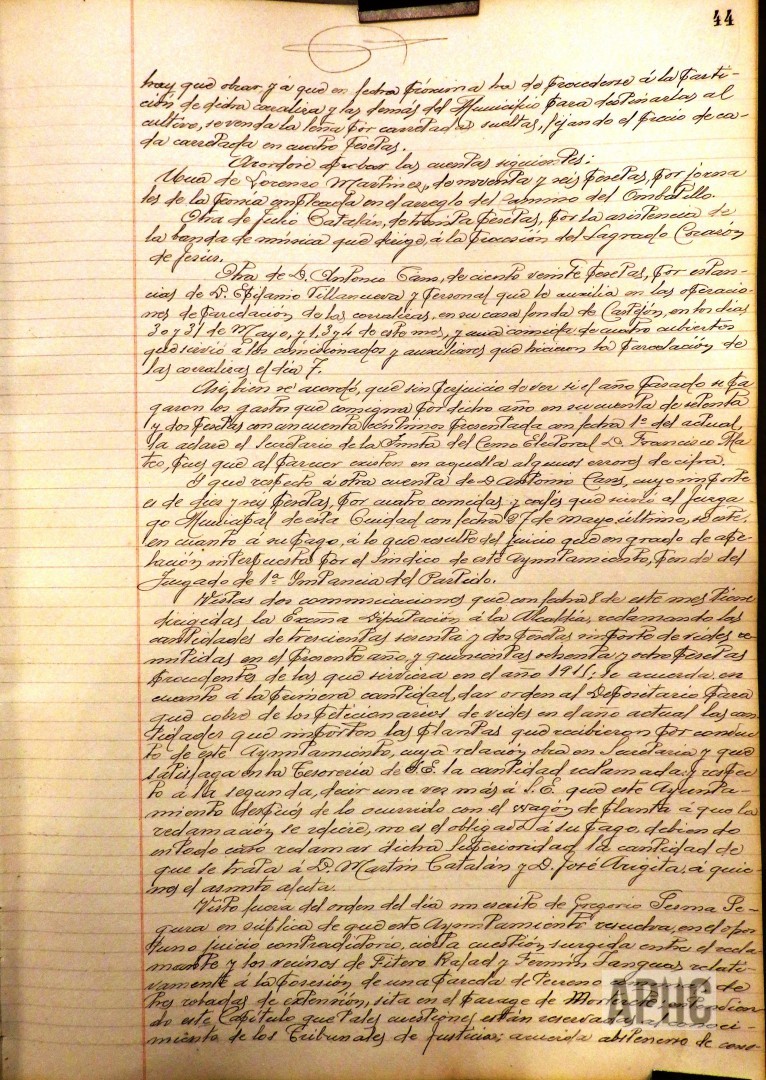 44
hay que obrar, y á que en fecha próxima ha de procederse á la parti-
ción de dicha corraliza y las demás del Municipio para destinarlas al
cultivo, se venda la leña por carretadas sueltas, fijando el precio de ca-
da carretada en cuatro pesetas.
Acordose aprobar las cuentas siguientes:
Una de Lorenzo Martinez, de noventa y seis pesetas, por jorna
les de la empleada en el arreglo del camino del Ombatillo.
Otra de Julio Catalán, de treinta pesetas, por la asistencia de
la banda de música que dirige, á la procesión del Sagrado Corazón
de Jesús.
Otra de D. Antonio Cans, de ciento veinte pesetas, por estan-
cias de D. Epifanio Villanueva y personal que le auxilia en las operacio-
nes de parcelación de las corralizas, en su casa fonda de Castejón, en los dias
30 y 31 de Mayo, y 1, 3 y 4 de este mes, y una comida de cuatro cubiertos
que sirvió á los comisionados y auxiliares que hicieron la parcelación de
las corralizas el día 7.
Asi bien se acordó, que sin perjuicio de ver si el año pasado se pa
garon los gastos que consigna por dicho año en su cuenta de setenta
y dos pesetas con cincuenta céntimos presentada con fecha 1º del actual,
la aclare el Secretario de la Junta del Censo Electoral D. Francisco Ma-
teo, pues que al parecer existen en aquella algunos errores de cifra.
Y que respecto á otra cuenta de D. Antonio Cans, cuyo importe
es de diez y seis pesetas, por cuatro comidas y cafés que sirvió al Juzga-
go Municipal de esta Ciudad con fecha 27 de mayo último, se esté,
en cuanto á su pago, á lo que resulte del juicio que en grado de ape-
lación interpuesta por el Sindico de este Ayuntamiento, pende del
Juzgado de 1ª Instancia del Partido.
Vistas dos comunicaciones que con fecha 8 de este mes tiene
dirigidas la Excma Diputación á la Alcaldia, reclamando las
cantidades de trescientas sesenta y dos pesetas importe de vides re-
mitidas en el presente año, y quinientas ochenta y ocho pesetas
procedentes de las que sirviera en el año 1911; se acuerda, en
cuanto á la primera cantidad, dar orden al Depositario para
que cobre de los peticionarios de vides en el año actual las can
tidades que importen las plantas que recibieron por conduc
to de este Ayuntamiento, cuya relación obra en Secretaria y que
satisfaga en la Tesoreria de S.E. la cantidad reclamada; y respec
to á la segunda, decir una vez más á S.E. que este Ayunta-
miento después de lo ocurrido con el wagón de planta á que la
reclamación se refiere, no es el obligado á su pago, debiendo
en todo caso reclamar dicha Superioridad la cantidad de
que se trata á D. Martin Catalán y D. José Arigita, á quie-
nes el asunto afecta.
Visto fuera del orden del día un escrito de Gregorio Sesma Se-
gura en súplica de que este Ayuntamiento resuelva, en el opor
tuno juicio contradictorio, cierta cuestión surgida entre el recla
mante y los vecinos de Fitero Rafael y Fermín Yanguas relati-
vamente á la posesión de una parcela de terreno de
tres robadas de extensión, sita en el parage de entendien
do este Capítulo que tales cuestiones están reservadas al conoci-
miento de los Tribunales de justicia; acuerda abstenerse de cono-
APHC